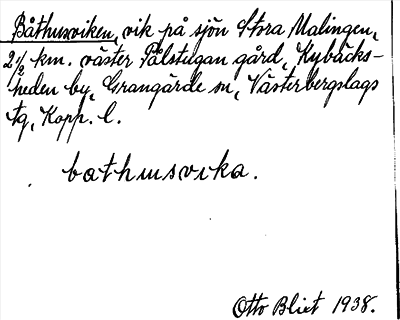 Båthusviken, vik på sjön Stora Malingen,
2 1/2 km. väster Pålstugan gård, Nybäcks-
heden by, Grangärde sn, Västerbergslags
tg, Kopp. l.
bathusvika.
Otto Blixt 1938.